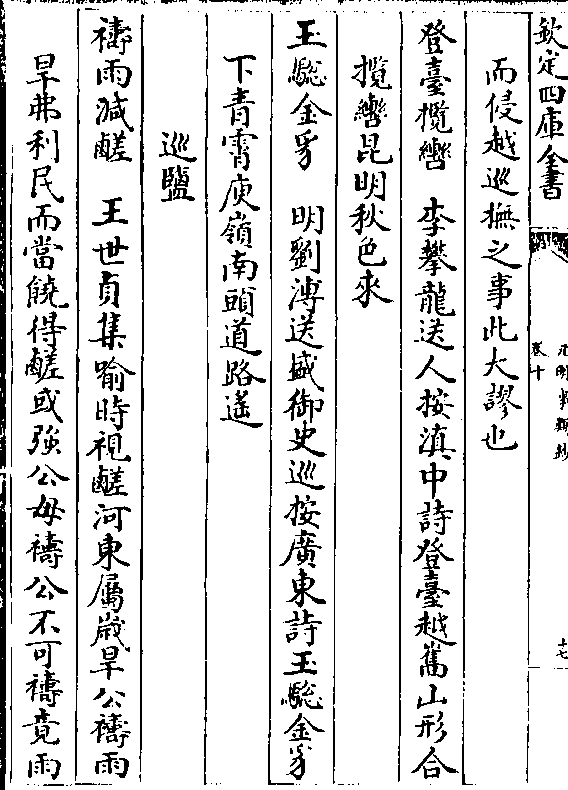 欽定四庫全書
元明事類鈔
卷十
十七
而侵越巡撫之事此大謬也
登臺攬轡　李攀龍送人按滇中詩登臺越嶲山形合
攬轡昆明秋色來
玉驄金豸　明劉溥送盛御史巡按廣東詩玉驄金豸
下青霄庾嶺南頭道路遙
巡鹽
禱雨減鹺　王世貞集喻時視鹺河東屬歲旱公禱雨
旱弗利民而當饒得鹺或強公毋禱公不可禱竟雨